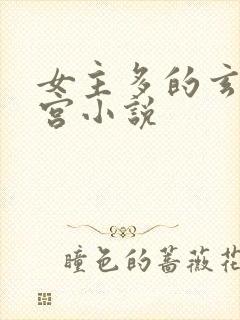 女主多的玄
宫小说
瞳色的蔷薇花